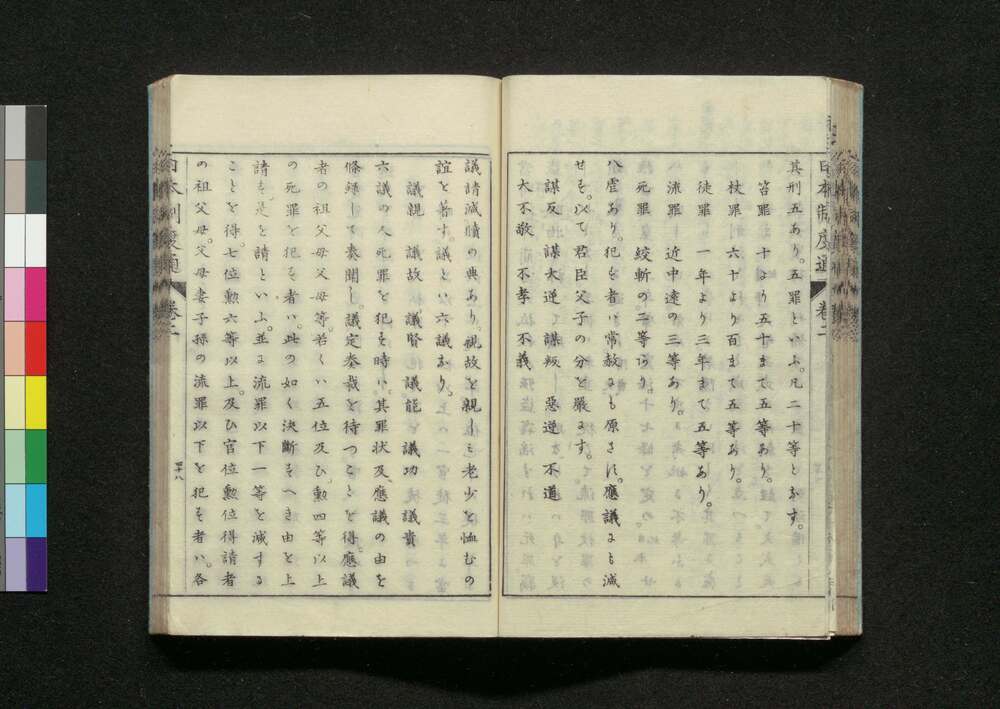 其刑五あり。五罪といふ。凡二十等とおす。
笞罪 十より五十まで五等あり。
杖罪 六十より百まで五等あり。
徒罪 一年より三年まで五等あり。
流罪 近中遠の三等あり。
死罪 絞斬の二等あり。
八虐あり。犯す者ハ常赦にも原さす。應議にも減
せす。以て君臣父子の分を嚴にす。
謀反 謀大逆 謀叛 惡逆 不道
大不敬 不孝 不義
議請減贖の典あり。親故を親しミ老少を恤むの
誼を著す。議といハ六議あり。
議親 議故 議賢 議能 議功 議貴
六議の人死罪を犯す時ハ。其罪状及應議の由を
條録して奏聞し。議定奏裁を待つことを得。應議
者の祖父母父母等。若くハ五位及ひ勳四等以上
の死罪を犯す者ハ。此の如く決斷すへき由を上
請す。是を請といふ。並に流罪以下一等を減する
ことを得。七位勳六等以上。及ひ官位勳位得請者
の祖父母。父母妻子孫の流罪以下を犯す者ハ。各
日本制度通 卷二
四十八
日本制度通 卷二